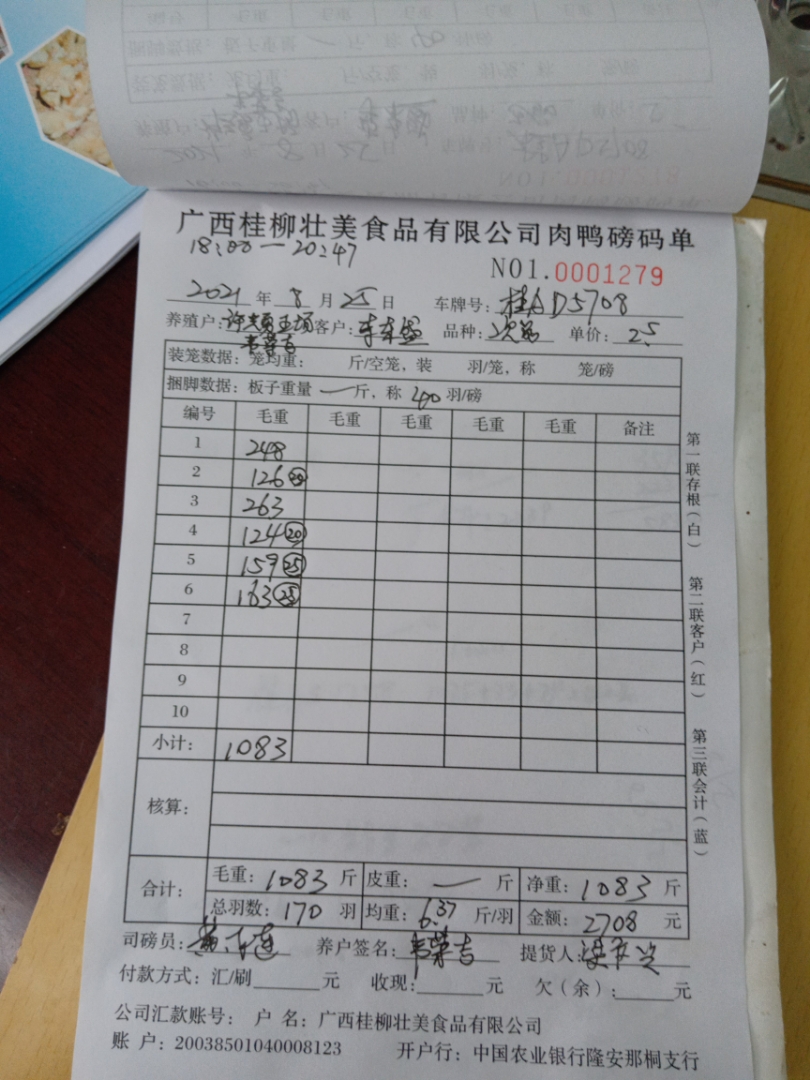 广西桂柳壮美食品有限公司肉鸭磅码单
18:00—20:47
NO1.0001279
2021年8月25日 车牌号:桂AD5708
养殖户: 客户: 品种: 单价:2.5
韦荣吉
装笼数据:笼均重: 斤/空笼,装 羽/笼,称 笼/磅
捆脚数据:板子重量 — 斤,称 40 羽/磅
编号 毛重 毛重 毛重 毛重 毛重 备注
1 248
2 126 20
3 263
4 124 20
5 159 25
6 163 25
7
8
9
10
小计: 1083
核算:
合计: 毛重:1083斤 皮重:—斤 净重:1083斤
总羽数:170羽 均重:6.37斤/羽 金额:2708元
司磅员: 养户签名:韦荣吉 提货人:
付款方式:汇/刷 元 收现: 元 欠(余): 元
公司汇款账号: 户 名:广西桂柳壮美食品有限公司
账 户:20038501040008123 开户行:中国农业银行隆安那桐支行
第一联存根(白) 第二联客户(红) 第三联会计(蓝)